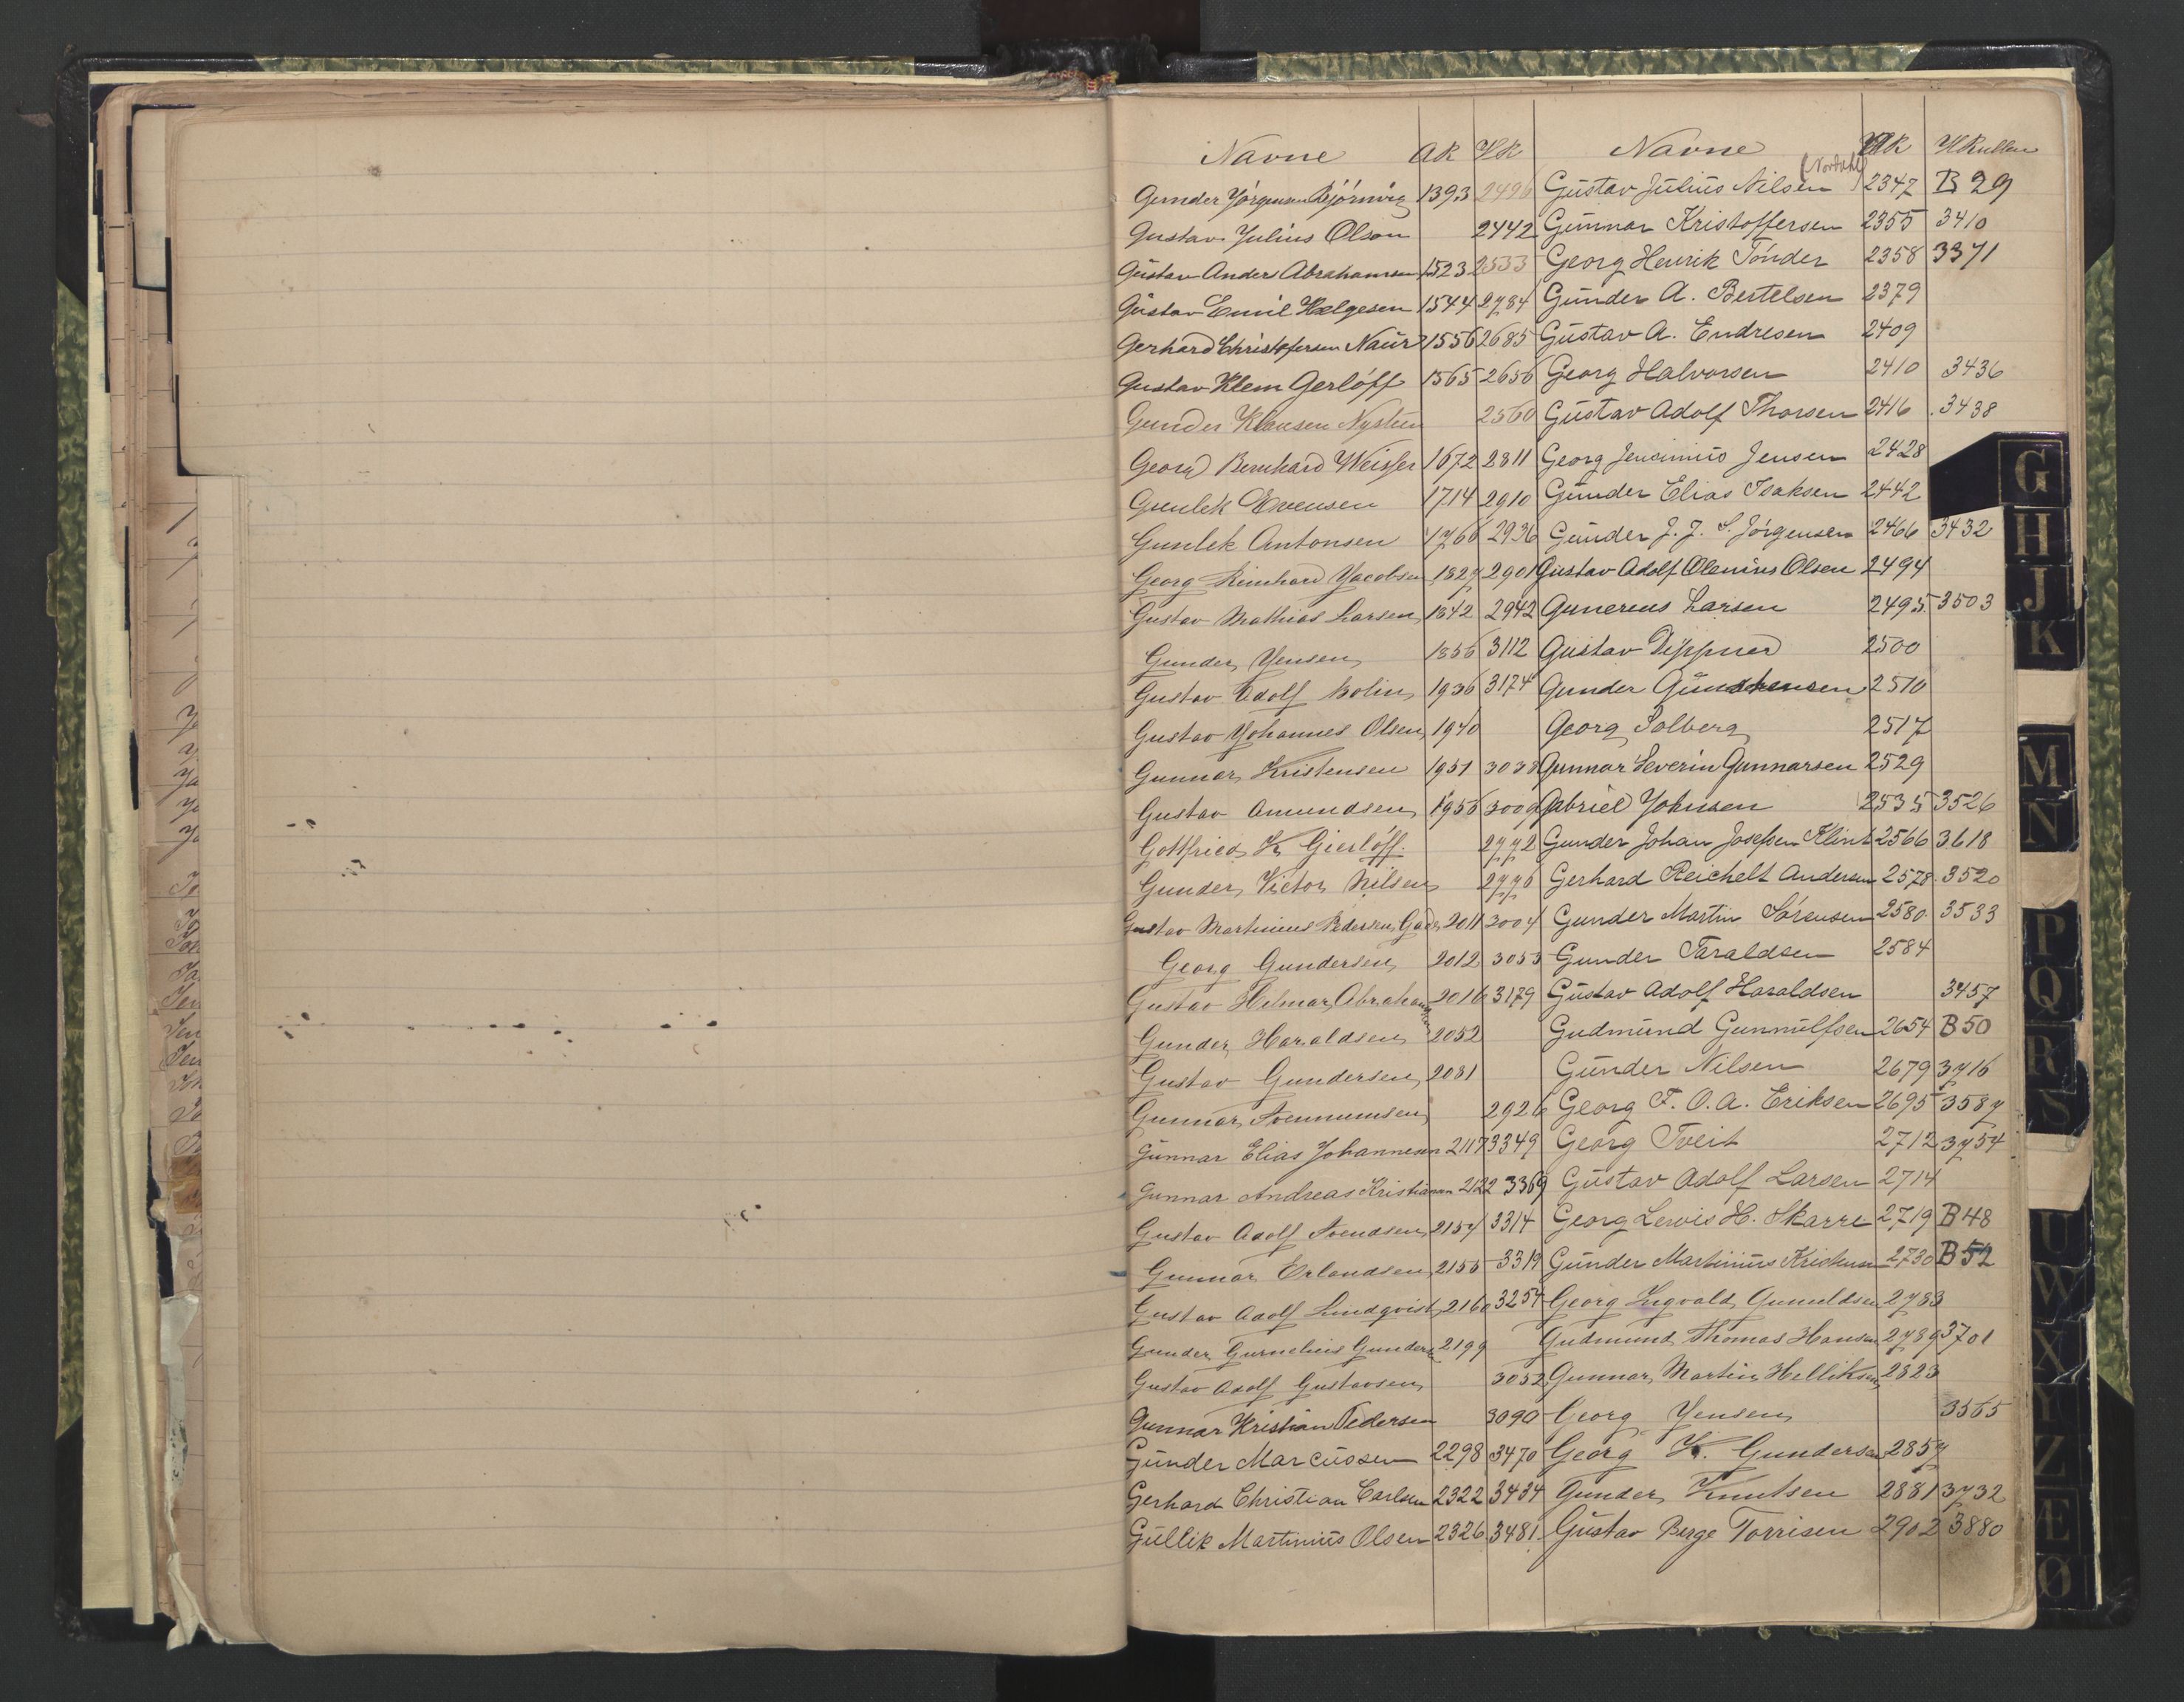 Navne AR HR Navne AR HRullen
Gunder Jörgensen Björnvig 1393 2496 Gustav Julius Nilsen (Nordahl) 2347 B 29
Gustav Julius Olson 2442 Gunnar Kristoffersen 2355 3410
Gustav Anders Abrahamsen 1523 2533 Georg Henrik Tönder 2358 3371
Gustav Emil Helgesen 1544 2784 Gunder A. Bertelsen 2379
Gerhard Christofersen Naur 1556 2685 Gustav A. Endresen 2409
Gustav Klem Gerlöff 1565 2656 Georg Halvorsen 2410 3436
Gunder Klausen Nysteen 2560 Gustav Adolf Thorsen 2416 3438
Georg Bernhard Weisser 1672 2811 Georg Jensinius Jensen 2428
Gunlek Evensen 1714 2910 Gunder Elias Isaksen 2442
Gunlek Antonsen 1766 2936 Gunder J. J. S. Jörgensen 2466 3432
Georg Reinhard Jacobsen 1827 2901 Gustav Adolf Olenius Olsen 2494
Gustav Mathias Larsen 1842 2942 Gunerius Larsen 2495 3503
Gunder Jensen 1856 3112 Gustav Dippner 2500
Gustav Adolf Bolin 1936 3174 Gunder 2510
Gustav Johannes Olsen 1940 Georg Solberg 2517
Gunnar Kristensen 1951 3038 Gunnar Severin Gunnarsen 2529
Gustav Amundsen 1956 3009 Gabriel Johnsen 2535 3526
Gottfried K Gierlöff. 2772 Gunder Johan Josefsen Klint 2566 3618
Gunder Victor Nilsen 2776 Gerhard Reichelt Andersen 2578 3520
Gustav Martinius Pedersen Gade 2011 3004 Gunder Martin Sörensen 2580 3533
Georg Gundersen 2012 3053 Gunder Taraldsen 2584
Gustav Hilmar Abrahamsen 2016 3179 Gustav Adolf Haraldsen 3457
Gunder Haraldsen 2052 Gudmund Gunnulfsen 2654 B 50
Gustav Gundersen 2081 Gunder Nilsen 2679 3716
Gunnar 2926 Georg F. O. A. Eriksen 2695 3587
Gunnar Elias Johannesen 2117 3349 Georg Tveit 2712 3754
Gunnar Andreas Kristiansen 2122 3369 Gustav Adolf Larsen 2714
Gustav Adolf Svendsen 2154 3314 Georg Lewis H. Skarre 2719 B 48
Gunnar Erlandsen 2156 3319 Gunder Martinius 2730 B 52
Gustav Adolf Lundqvist 2160 3254 Georg Ingvald Gunuldsen 2783
Gunder Gurnelius Gunders 2199 Gudmund Thomas Hansen 2789 3701
Gustav Adolf Gustavsen 3052 Gunnar Martin Helliksen 2823
Gunnar Kristian Pedersen 3090 Georg Jensen 3565
Gunder Marcussen 2298 3470 Georg K. Gundersen 2857
Gerhard Christian Carlsen 2322 3434 Gunder Knutsen 2881 3732
Gullik Martinius Olsen 2326 3481 Gustav Berge Torrisen 2902 3880
G
H
J
K
M
N
P
Q
R
S
U
W
X
Y
Z
Æ
Ø